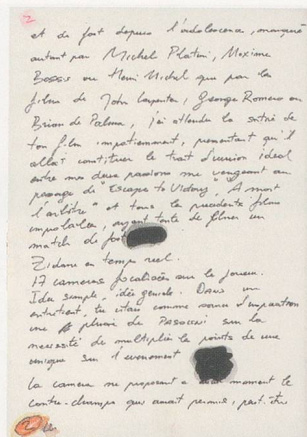 2
et de foot depuis l'adolescence, marqué
autant par Michel Platini, Maxime
Bossis ou Henri Michel que par les
films de John Carpenter, George Romero ou
Brian de Palma, j'ai attendu la sortie de
ton film impatiemment, pressentant qu'il
allait constituer le trait d'union idéal
entre mes deux passions me vengeant au
passage de "Escape to Victory", "A mort
l'arbitre" et tous les précédents films
ayant tenté de filmer un
match de foot
Zidane en temps réel.
17 caméras focalisées sur le joueur.
Idée simple, idée géniale. Dans un
entretien, tu citais comme source d'inspiration
une phrase de PASOLINI sur la
nécessité de multiplier les points de vue
unique sur l'événement
La caméra me proposant a moment le
contre-champs que aurait permis, peut-être
2